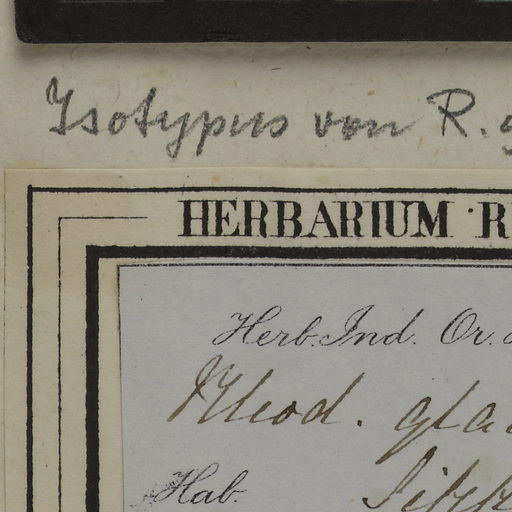 Isotypus von R. g
HERBARIUM R
Herb. Ind. Or.
Rhod. gla
Hab.